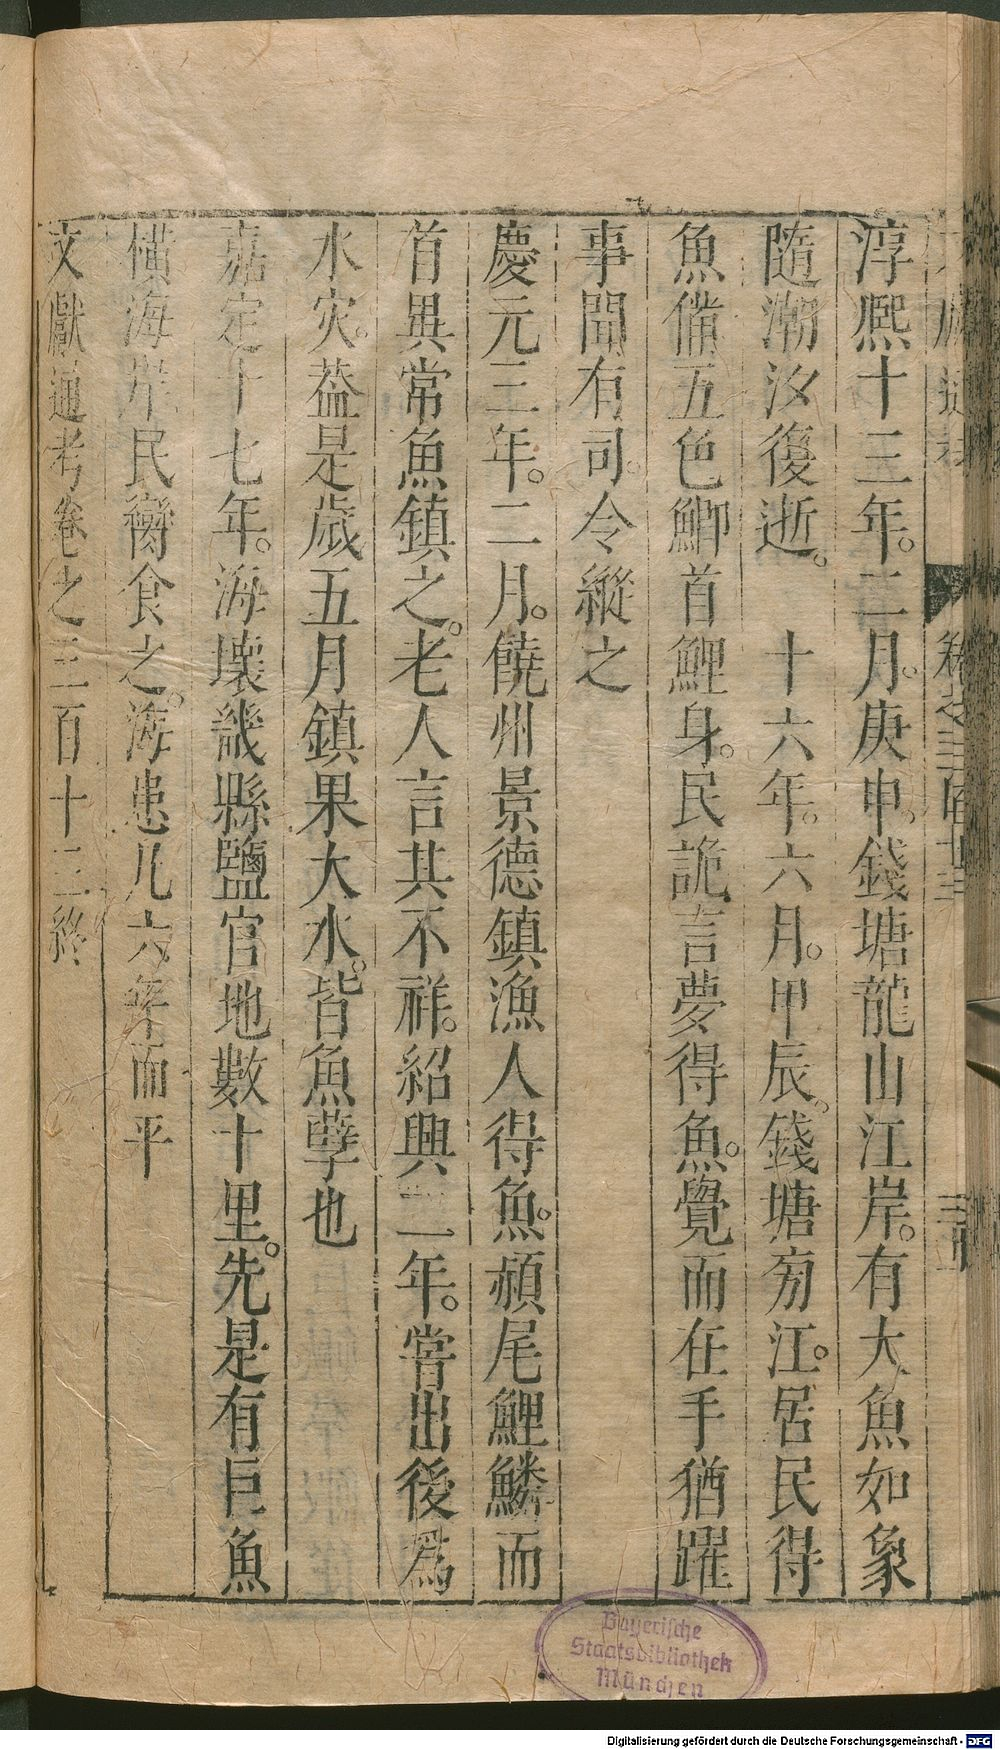 淳熈十三年。二月。庚申。錢塘龍山江岸。有大魚如象
隨潮汐復逝。　十六年。六月。甲辰。錢塘旁江。居民得
魚備五色鯽首鯉身。民詭言夢得魚。覺而在手猶躍
事聞有司。令縱之
慶元三年。二月。饒州景德鎮漁人得魚。頳尾鯉鱗而
首異常魚鎮之。老人言其不祥。紹興二年。嘗出後爲
水灾。葢是歲五月鎮果大水。皆魚孽也
嘉定十七年。海壞畿縣鹽官地數十里。先是有巨魚
橫海岸民臠食之。海患凡六年而平
文獻通考卷之三百十三終
Bayerische
Staatsbibliothek
München
Digitalisierung gefördert durch die Deutsche Forschungsgemeinschaft - DFG